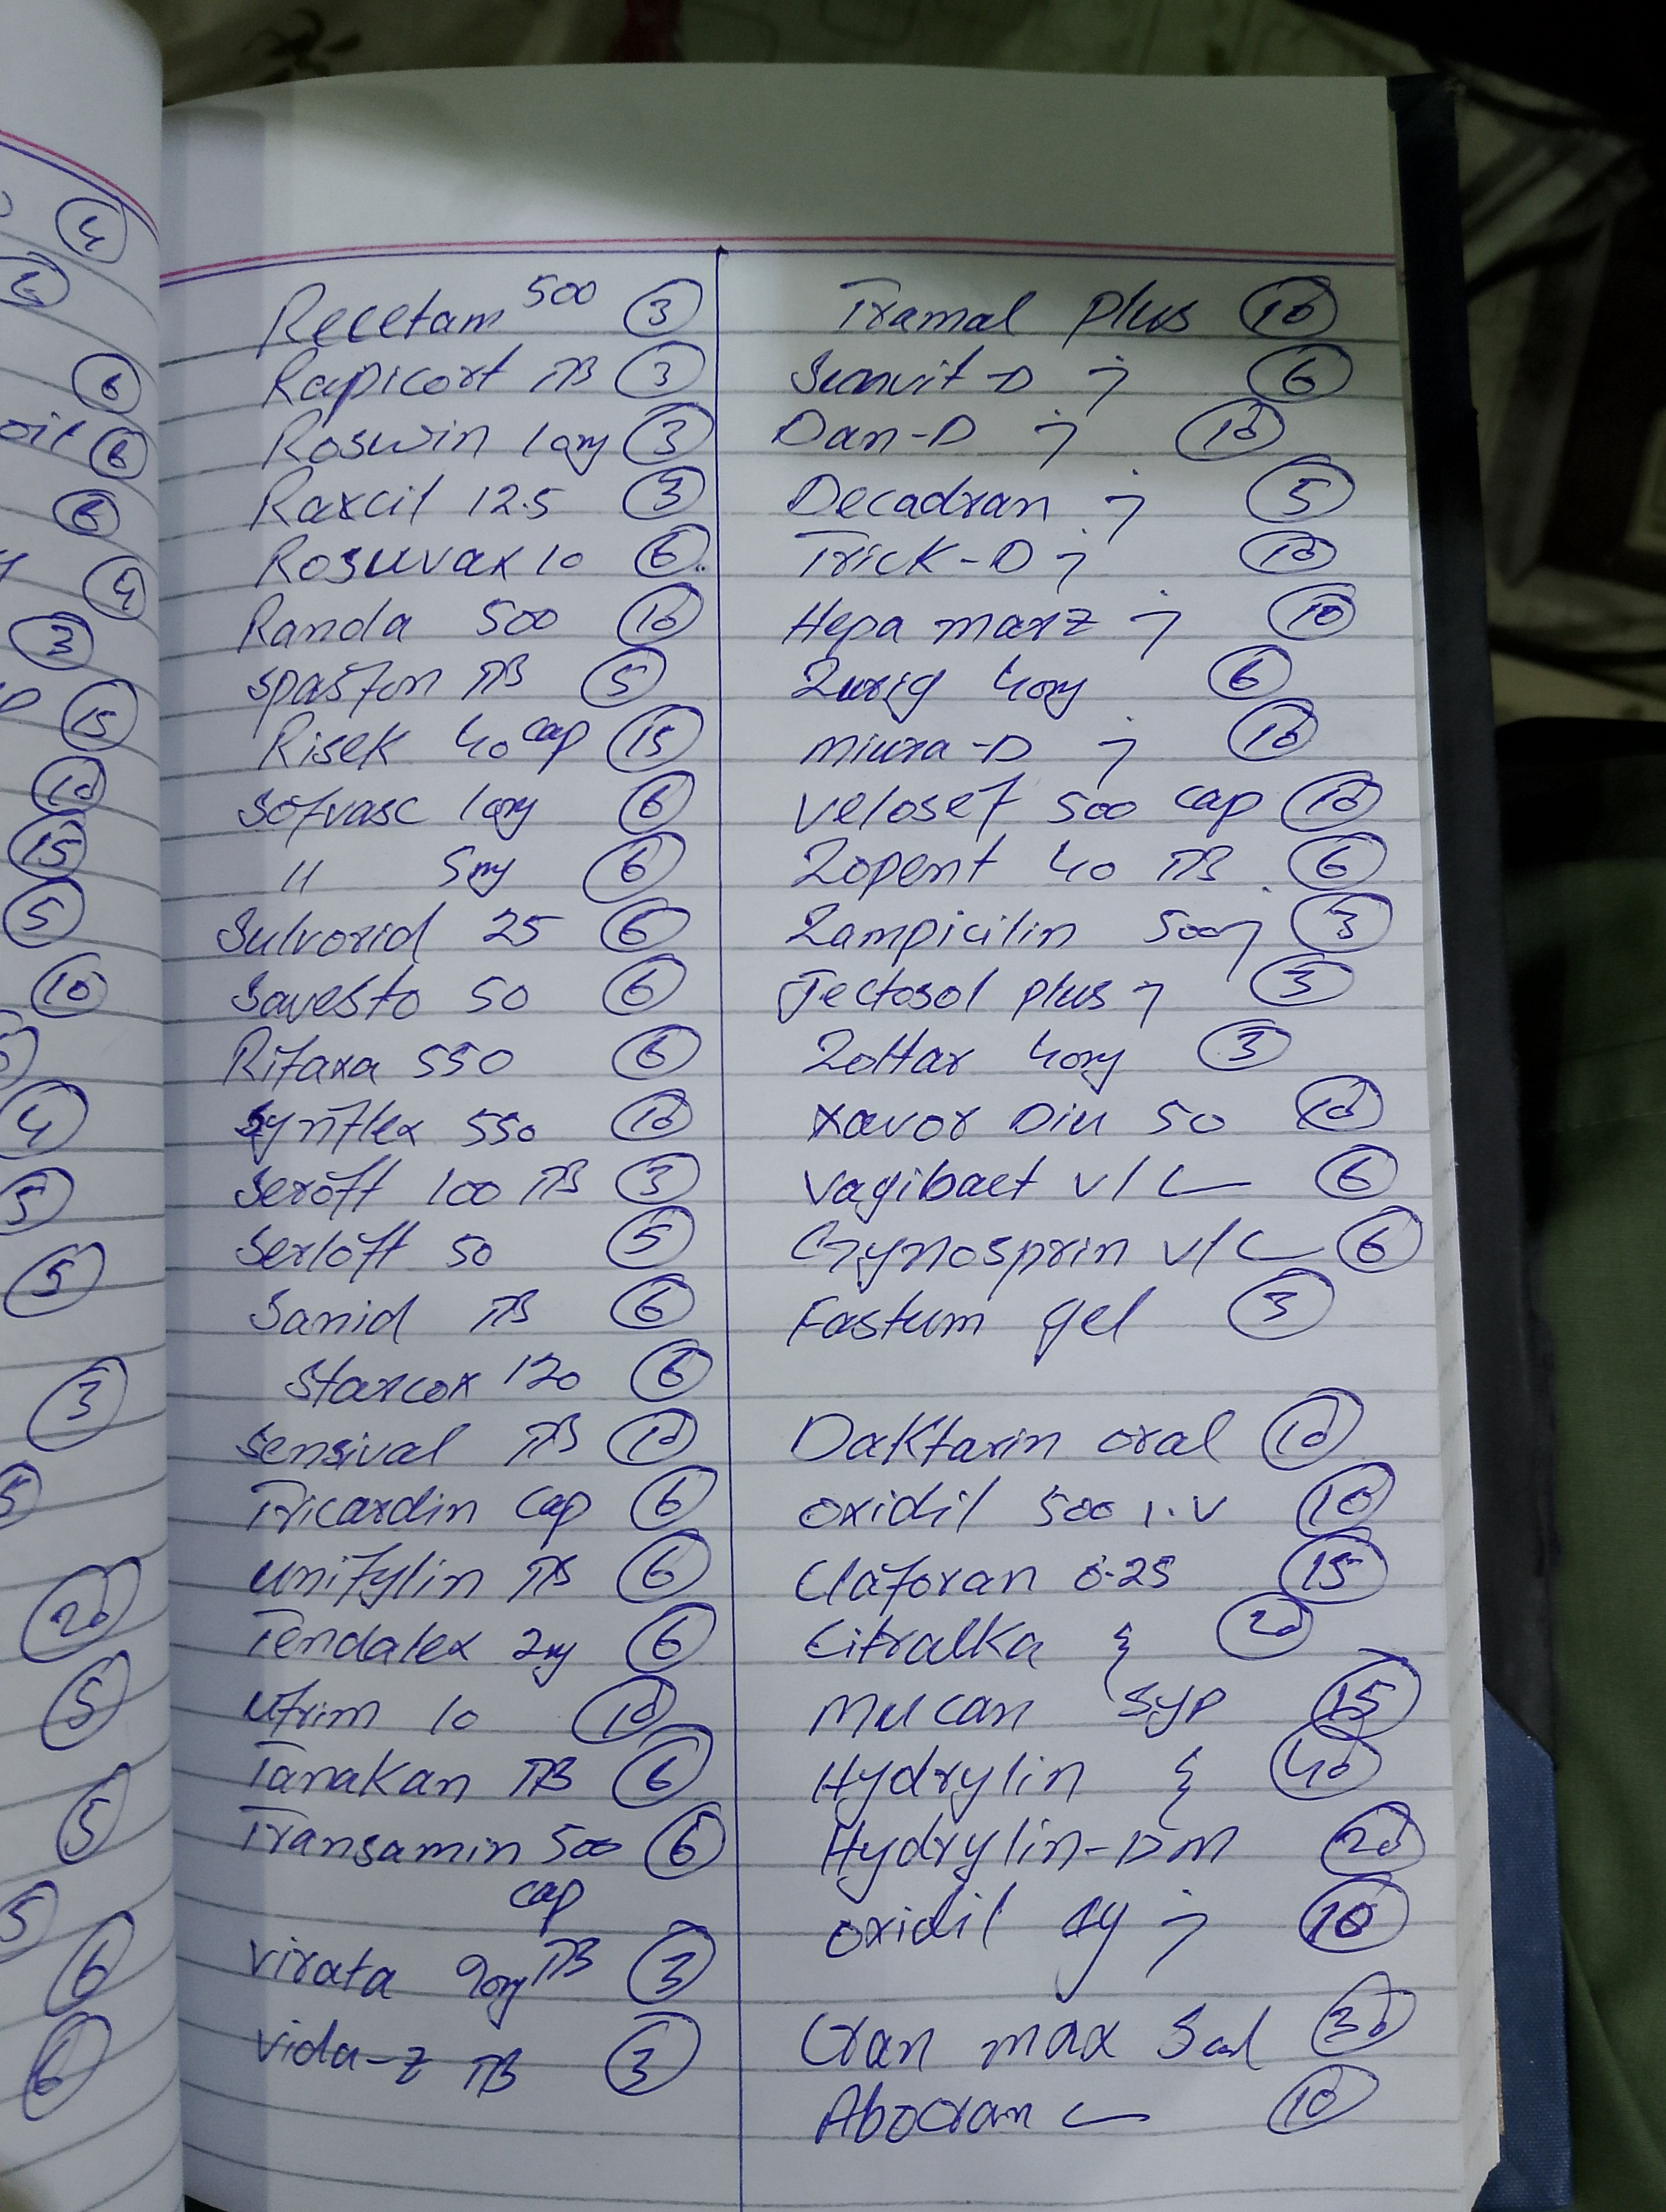 Recetam 500 3
Rapicort TB 3
Roswin 10mg 3
Raxcil 12.5 3
Rosuvax 10 6
Randa 500 10
Spasfon TB 5
Risek 40 cap 15
Sofvasc 10mg 6
" 5mg 6
Sulvorid 25 6
Savesto 50 6
Rifaxa 550 6
Synflex 550 10
Seroft 100 TB 3
Serloft 50 5
Sanid TB 6
Starcox 120 6
Sensival TB 10
Tricardin Cap 6
Unifylin TB 6
Tendalex 2mg 6
Ufrim 10 10
Tanakan TB 6
Transamin 500 6
cap
Virata 90mg TB 3
Vida-z TB 3
Tramal plus 10
Sunvit-D 6
Dan-D 10
Decadran 5
Trick-D 10
Hepa marz 10
Zurig 40mg 6
Miura-D 10
Velosef 500 cap 10
Zopent 40 TB 6
Zampicilin 500 3
Jectosol plus 3
Zoltar 40mg 3
Xavor Diu 50 10
Vagibact v/c 6
Gynosprin v/c 6
Fastum gel 3
Daktarin oral 10
Oxidil 500 I.V 10
Claforan 0.25 15
Citralka 20
Mucan Syp 15
Hydrylin 40
Hydrylin-DM 20
Oxidil 1g 10
Cran max Sad 30
Abocran 10
4
6
6
6
4
3
15
10
15
5
10
4
5
5
3
5
20
5
5
5
6
6